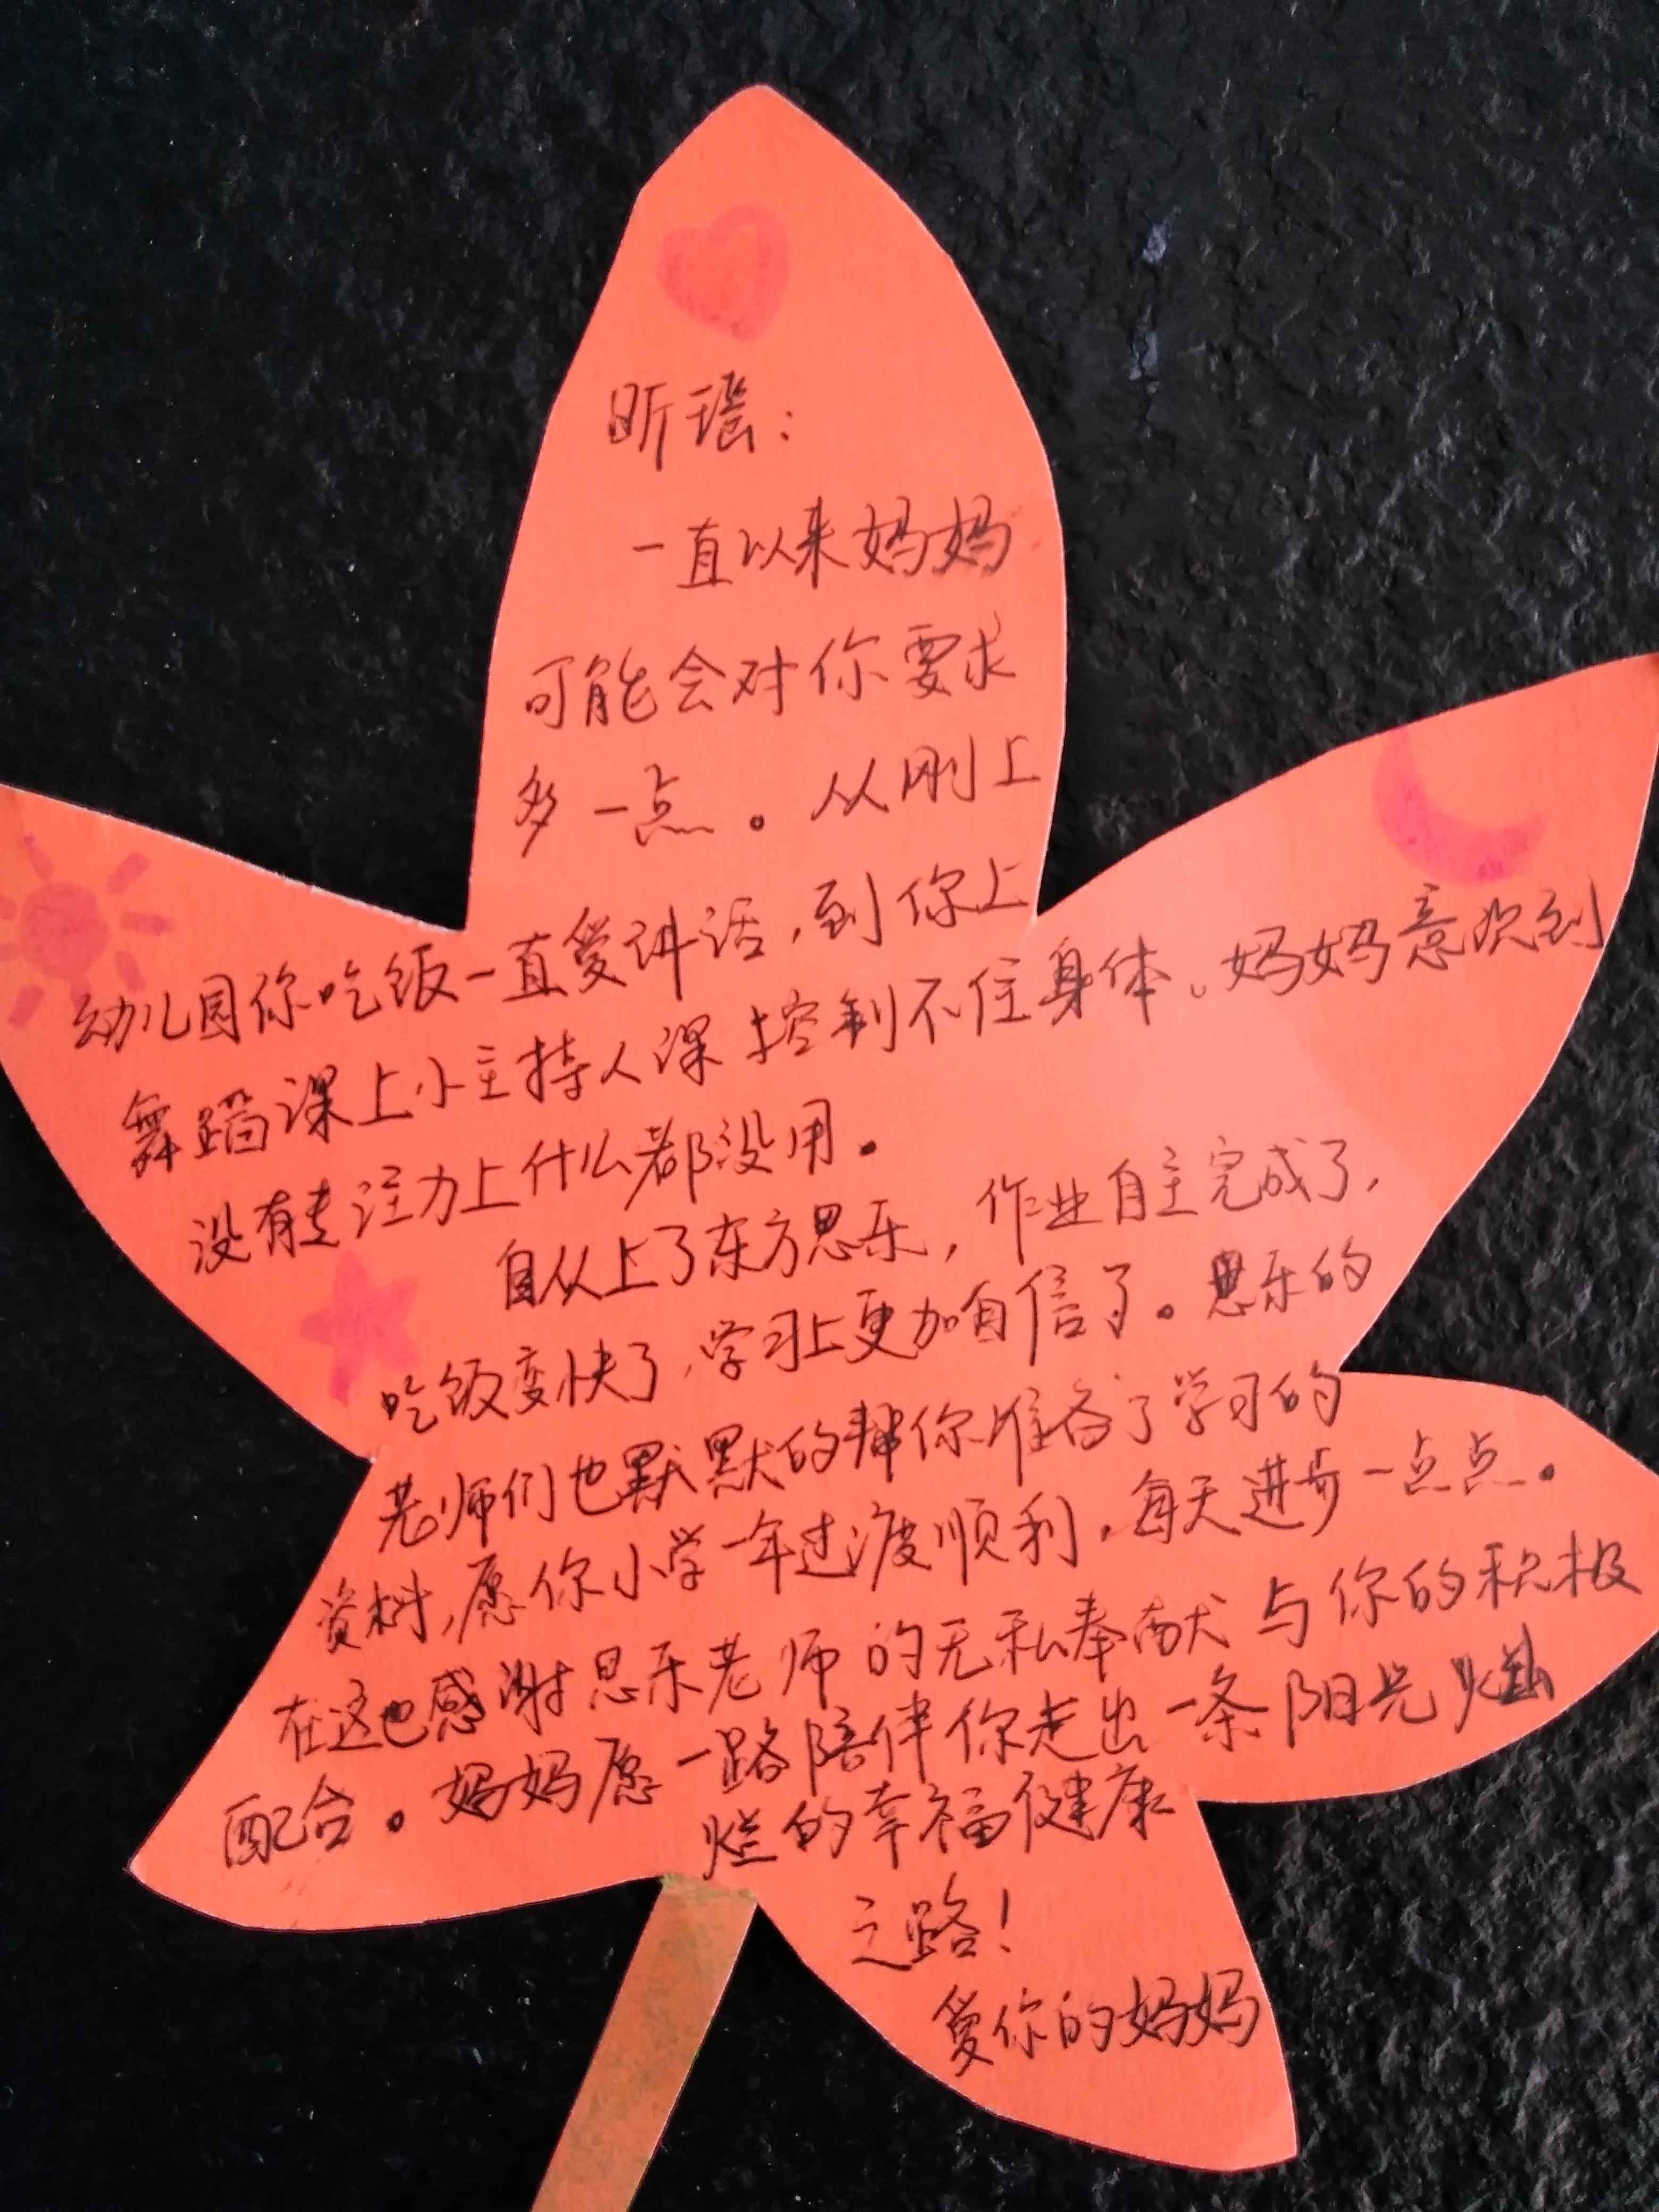 昕瑶：
一直以来妈妈
可能会对你要求
多一点。从刚上
幼儿园你吃饭一直爱讲话，到你上
舞蹈课上小主持人课控制不住身体。妈妈意识到
没有专注力上什么都没用。
自从上了东方思乐，作业自主完成了，
吃饭变快了，学习上更加自信了。思乐的
老师们也默默的帮你准备了学习的
资料，愿你小学一年过渡顺利，每天进步一点点。
在这也感谢思乐老师的无私奉献与你的积极
配合。妈妈愿一路陪伴你走出一条阳光灿
烂的幸福健康
之路！
爱你的妈妈